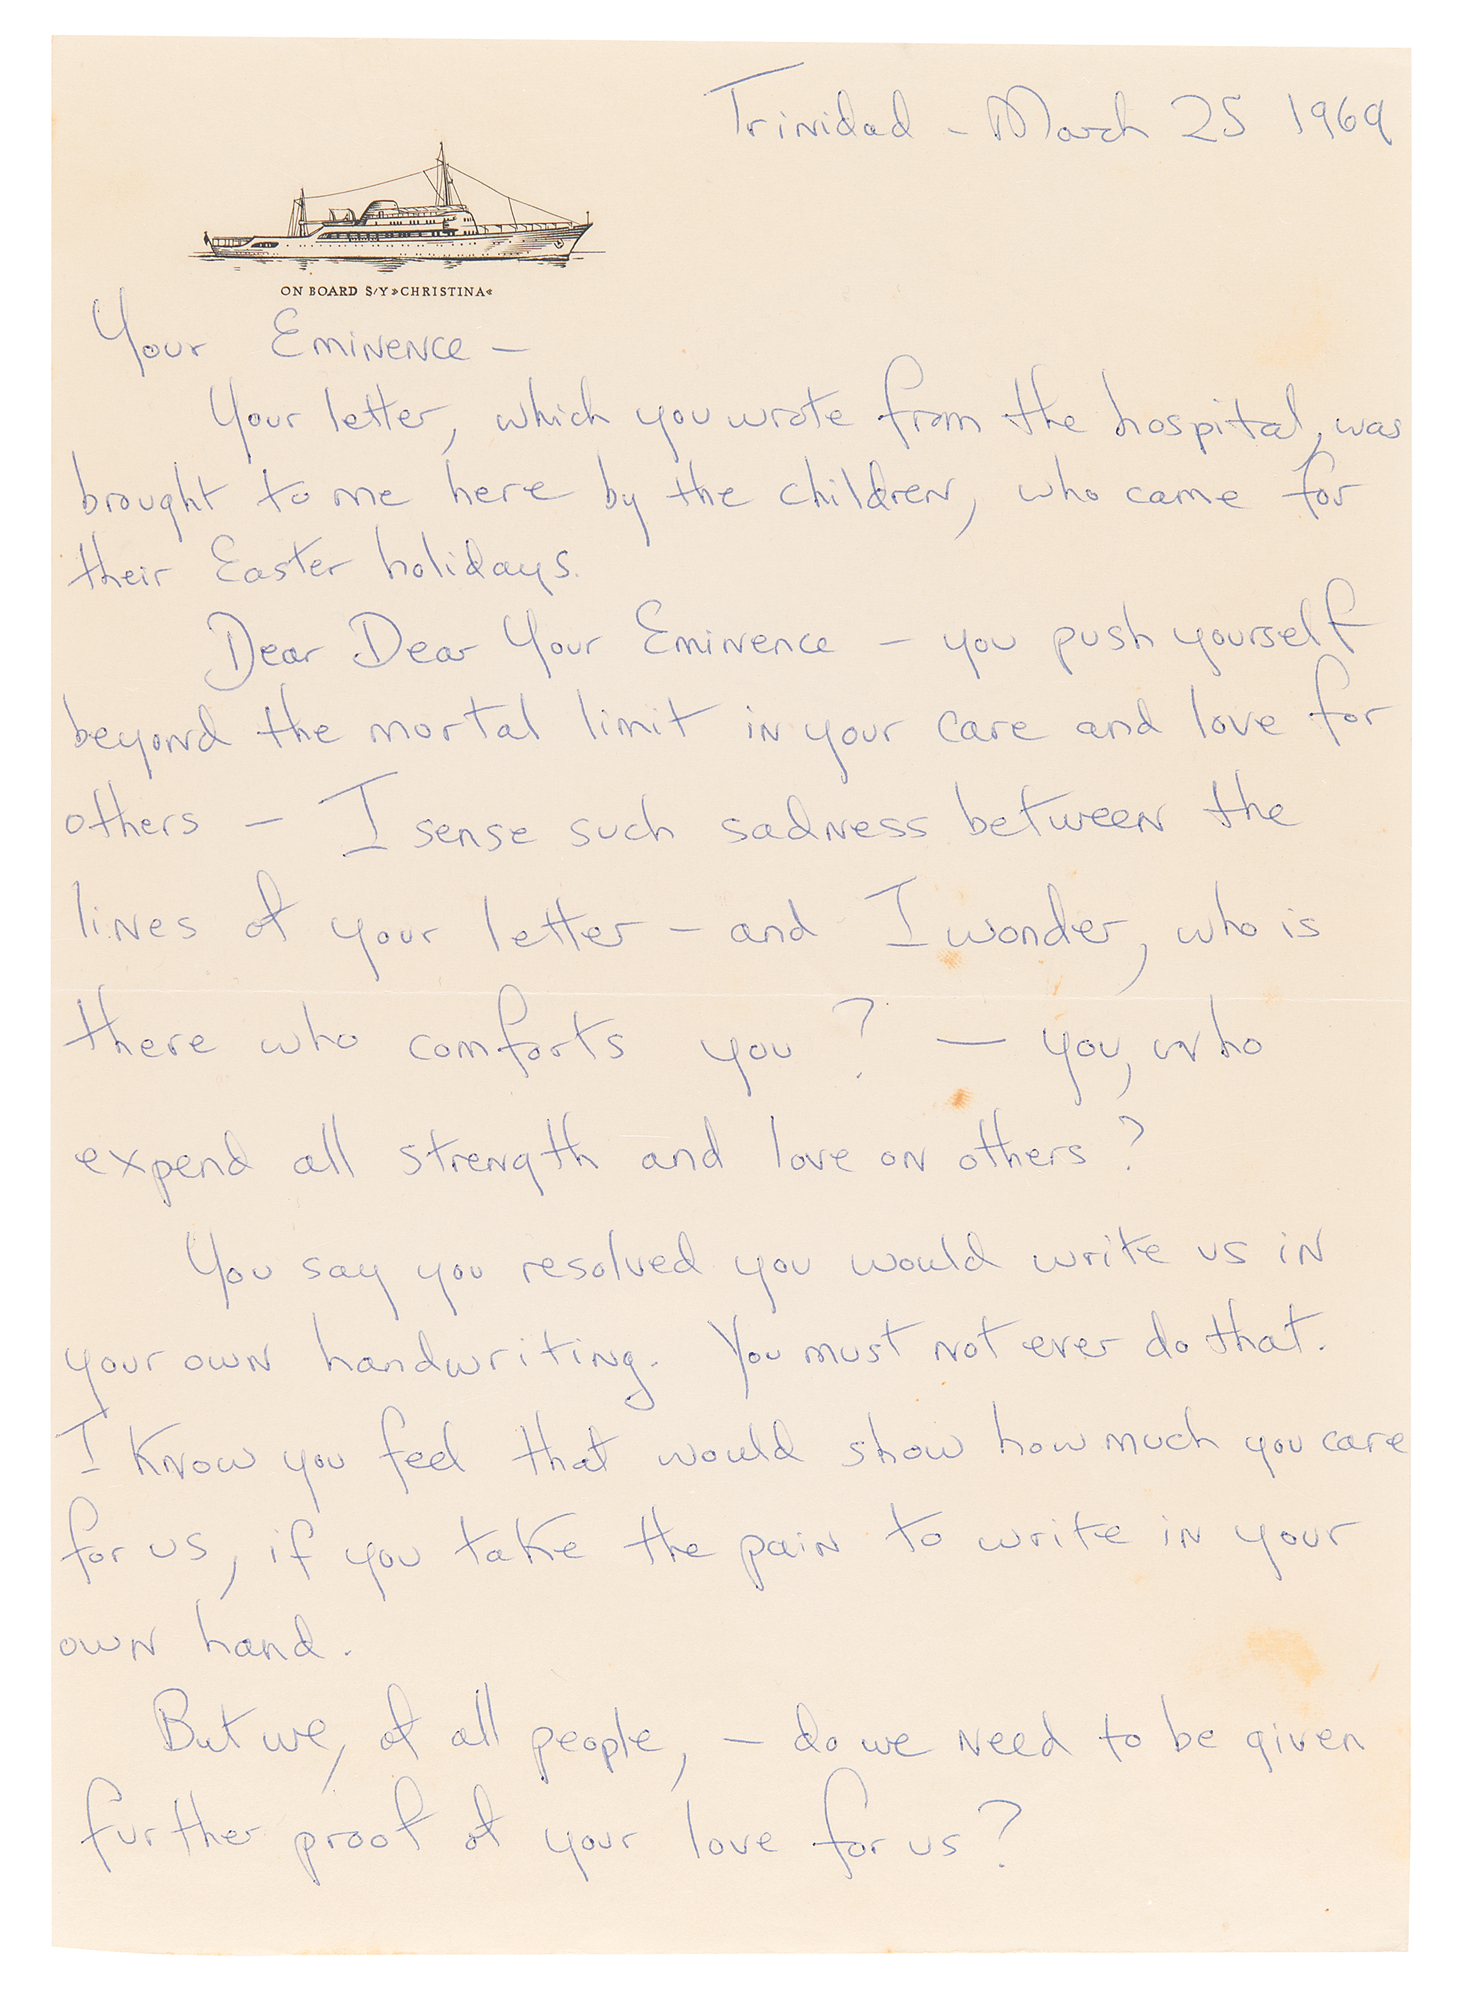 Trinidad - March 25 1969
ON BOARD S/Y »CHRISTINA«
Your Eminence -
Your letter, which you wrote from the hospital, was
brought to me here by the children, who came for
their Easter holidays.
Dear Dear Your Eminence - you push yourself
beyond the mortal limit in your care and love for
others - I sense such sadness between the
lines of your letter - and I wonder, who is
there who comforts you? - you, who
expend all strength and love on others?
You say you resolved you would write us in
your own handwriting. You must not ever do that.
I know you feel that would show how much you care
for us, if you take the pain to write in your
own hand.
But we, of all people, - do we need to be given
further proof of your love for us?